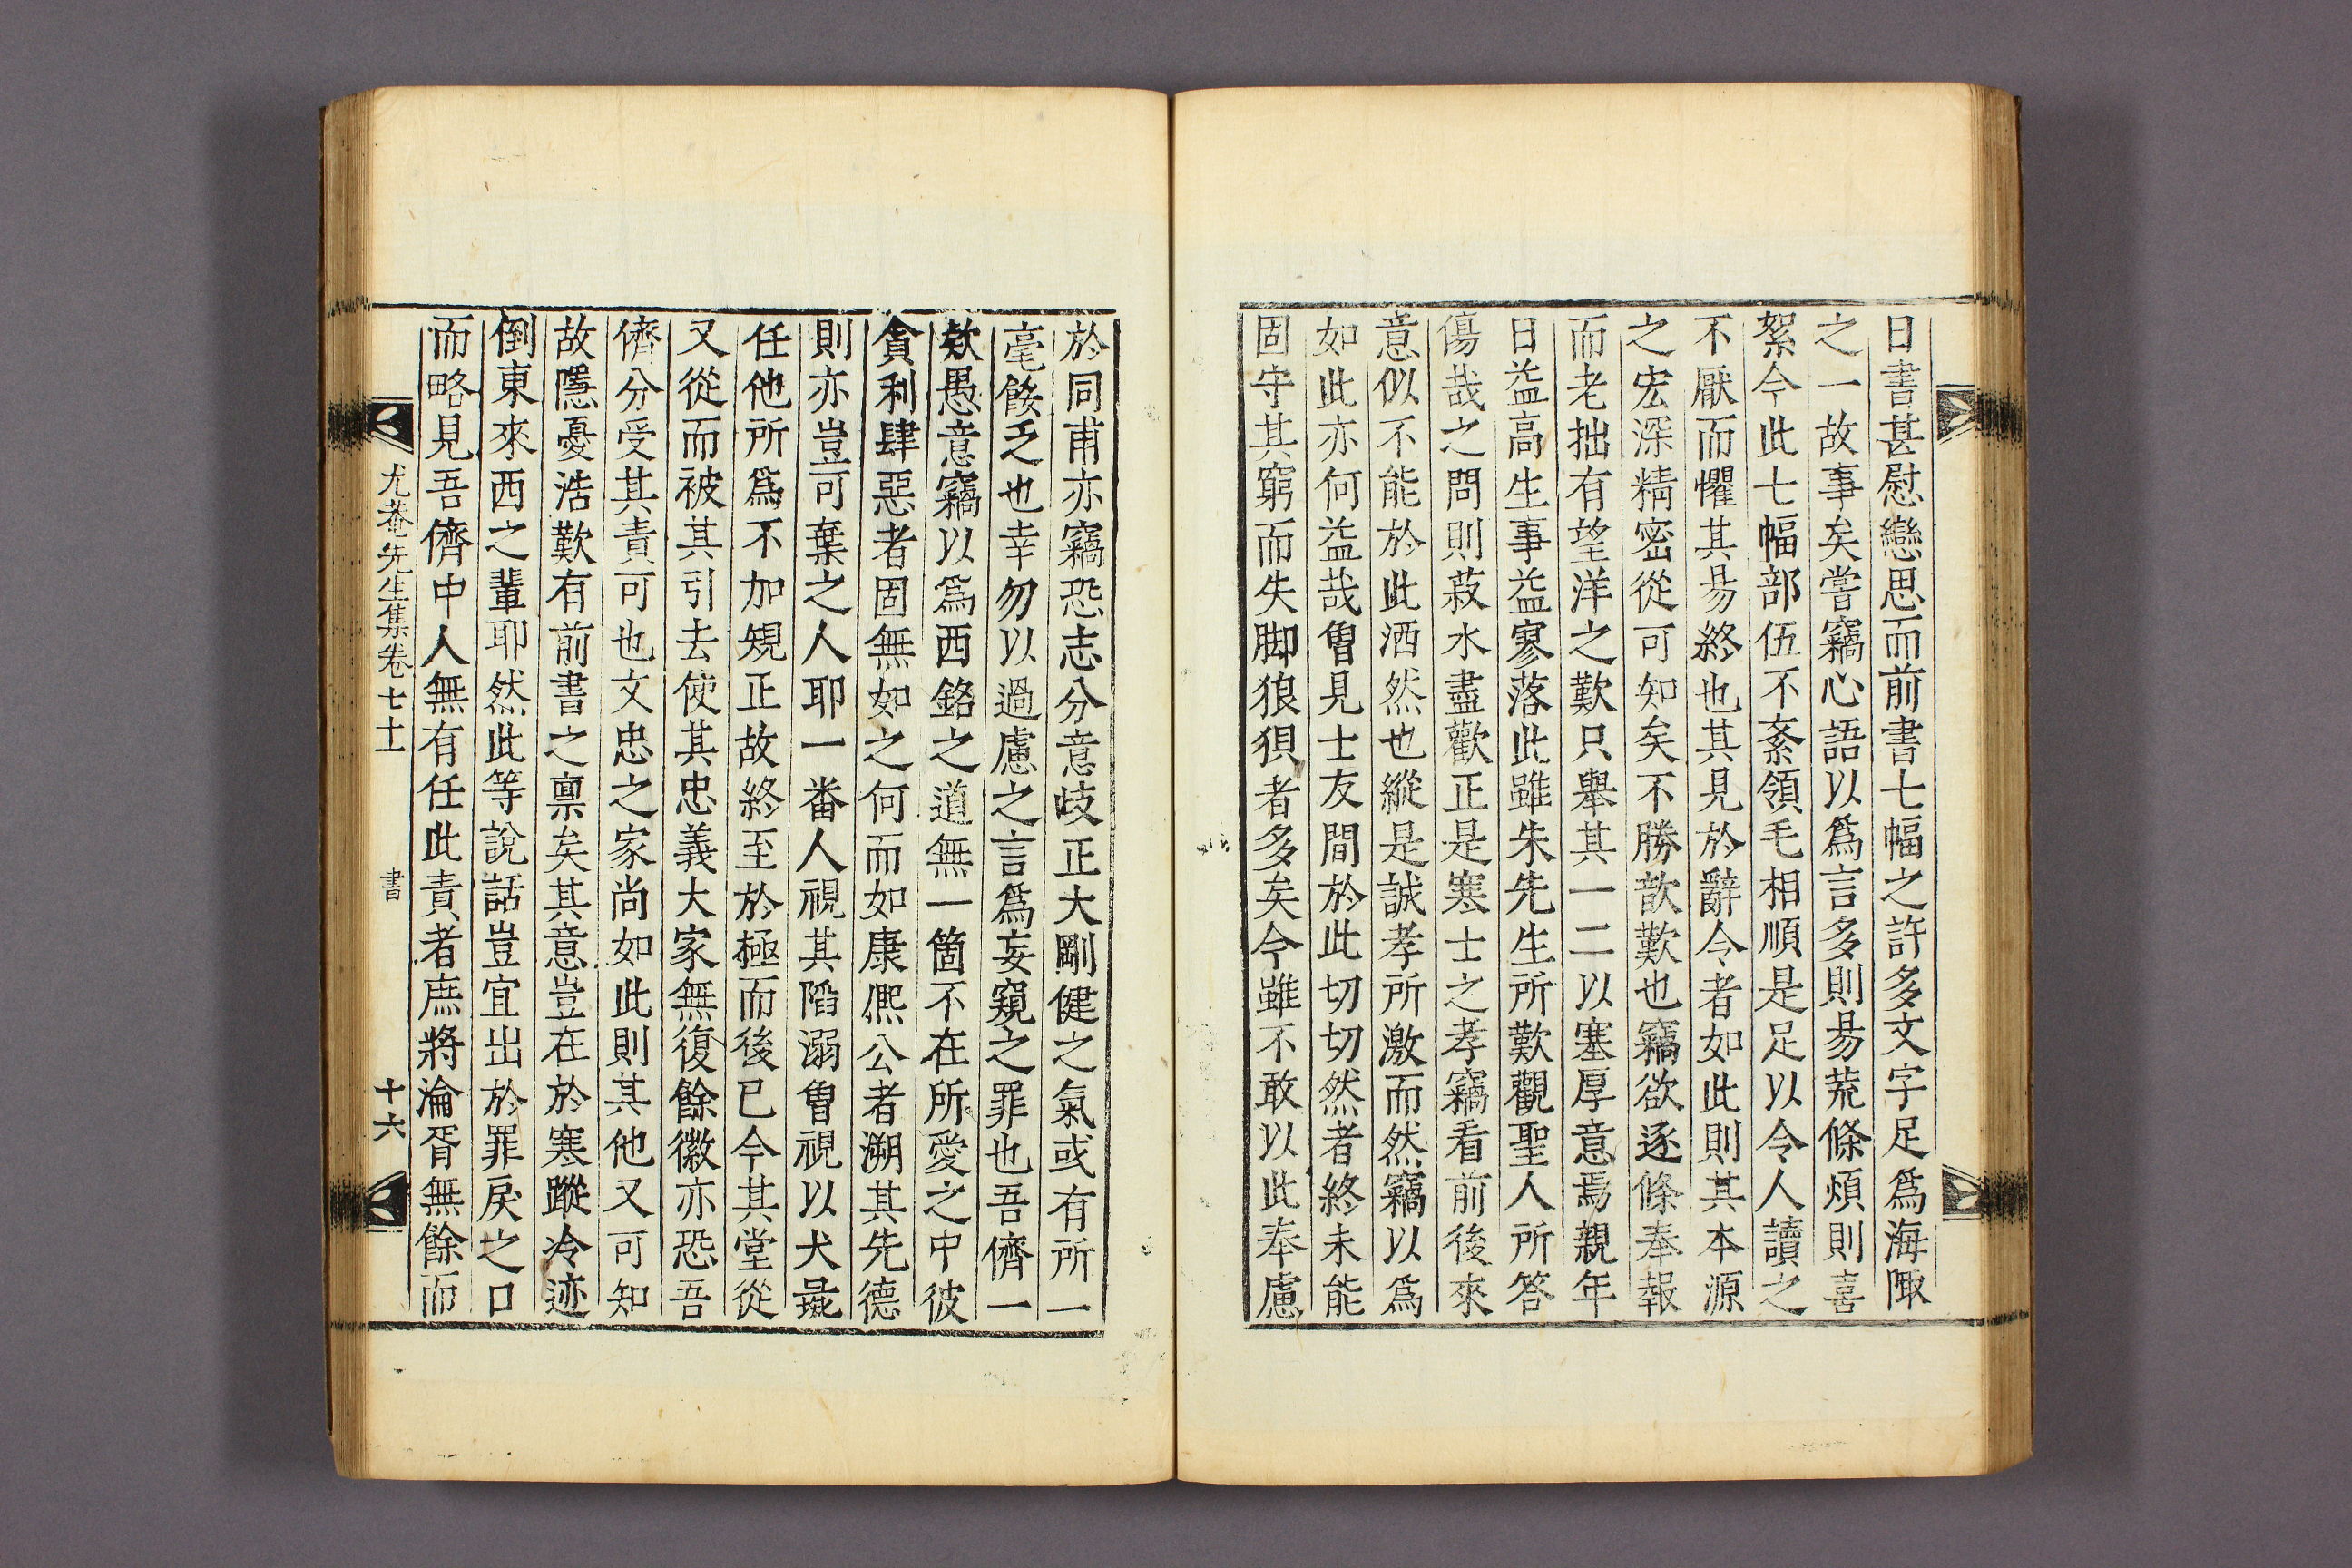 日書甚慰戀思而前書七幅之許多文字足爲海陬
之一故事矣嘗竊心語以爲言多則易荒條煩則喜
絮今此七幅部伍不紊領毛相順是足以令人讀之
不厭而懼其易終也其見於辭令者如此則其本源
之宏深精密從可知矣不勝歆歎也竊欲逐條奉報
而老拙有望洋之歎只擧其一二以塞厚意焉親年
日益高生事益寥落此雖朱先生所歎觀聖人所答
傷哉之問則菽水盡歡正是寒士之孝竊看前後來
意似不能於此洒然也縱是誠孝所激而然竊以爲
如此亦何益哉曾見士友間於此切切然者終未能
固守其窮而失脚狼狽者多矣今雖不敢以此奉慮
於同甫亦竊恐志分意歧正大剛健之氣或有所一
毫餒乏也幸勿以過慮之言爲妄窺之罪也吾儕一
欸愚意竊以爲西銘之道無一箇不在所愛之中彼
貪利肆惡者固無如之何而如康熙公者溯其先德
則亦豈可棄之人耶一番人視其陷溺曾視以犬彘
任他所爲不加規正故終至於極而後已今其堂從
又從而被其引去使其忠義大家無復餘徽亦恐吾
儕分受其責可也文忠之家尚如此則其他又可知
故隱憂浩歎有前書之禀矣其意豈在於寒蹤冷迹
倒東來西之輩耶然此等說話豈宜出於罪戾之口
而略見吾儕中人無有任此責者庶將淪胥無餘而
尤菴先生集卷七十一 書 十六